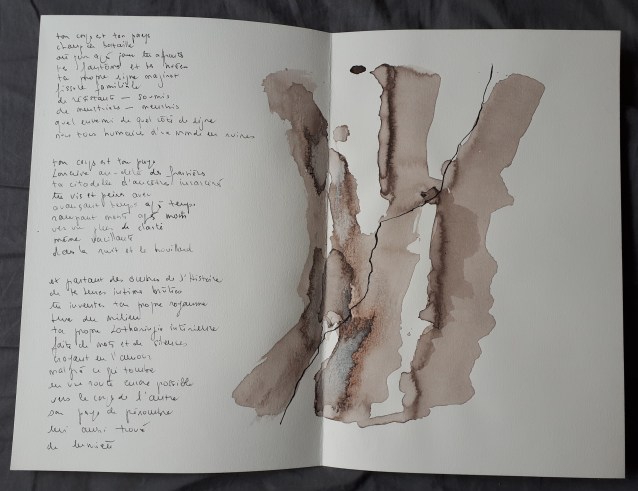 ton corps est ton pays
champ de bataille
où jour après jour tu affrontes
ta propre ligne maginot
fissure familiale
de résistants — soumis
de meurtriers — meurtris
quel ennemi de quel côté de ligne
nous tous humains d'un monde en ruines
ton corps est ton pays
Lorraine au-delà des frontières
ta citadelle d'ancêtre
tu vis et peins avec
avançant temps après temps
rampant mots après mots
vers un peu de clarté
même vacillante
dans la nuit et le brouillard
et partant des ombres de l'Histoire
de tes terres intimes brûlées
tu inventes ton propre royaume
terre du milieu
ta propre Lotharingie intérieure
faite de mots et de silences
croyant en l'amour
malgré ce qui tombe
en une route encore possible
vers le corps de l'autre
son pays de pénombre
lui aussi troué
de lumière